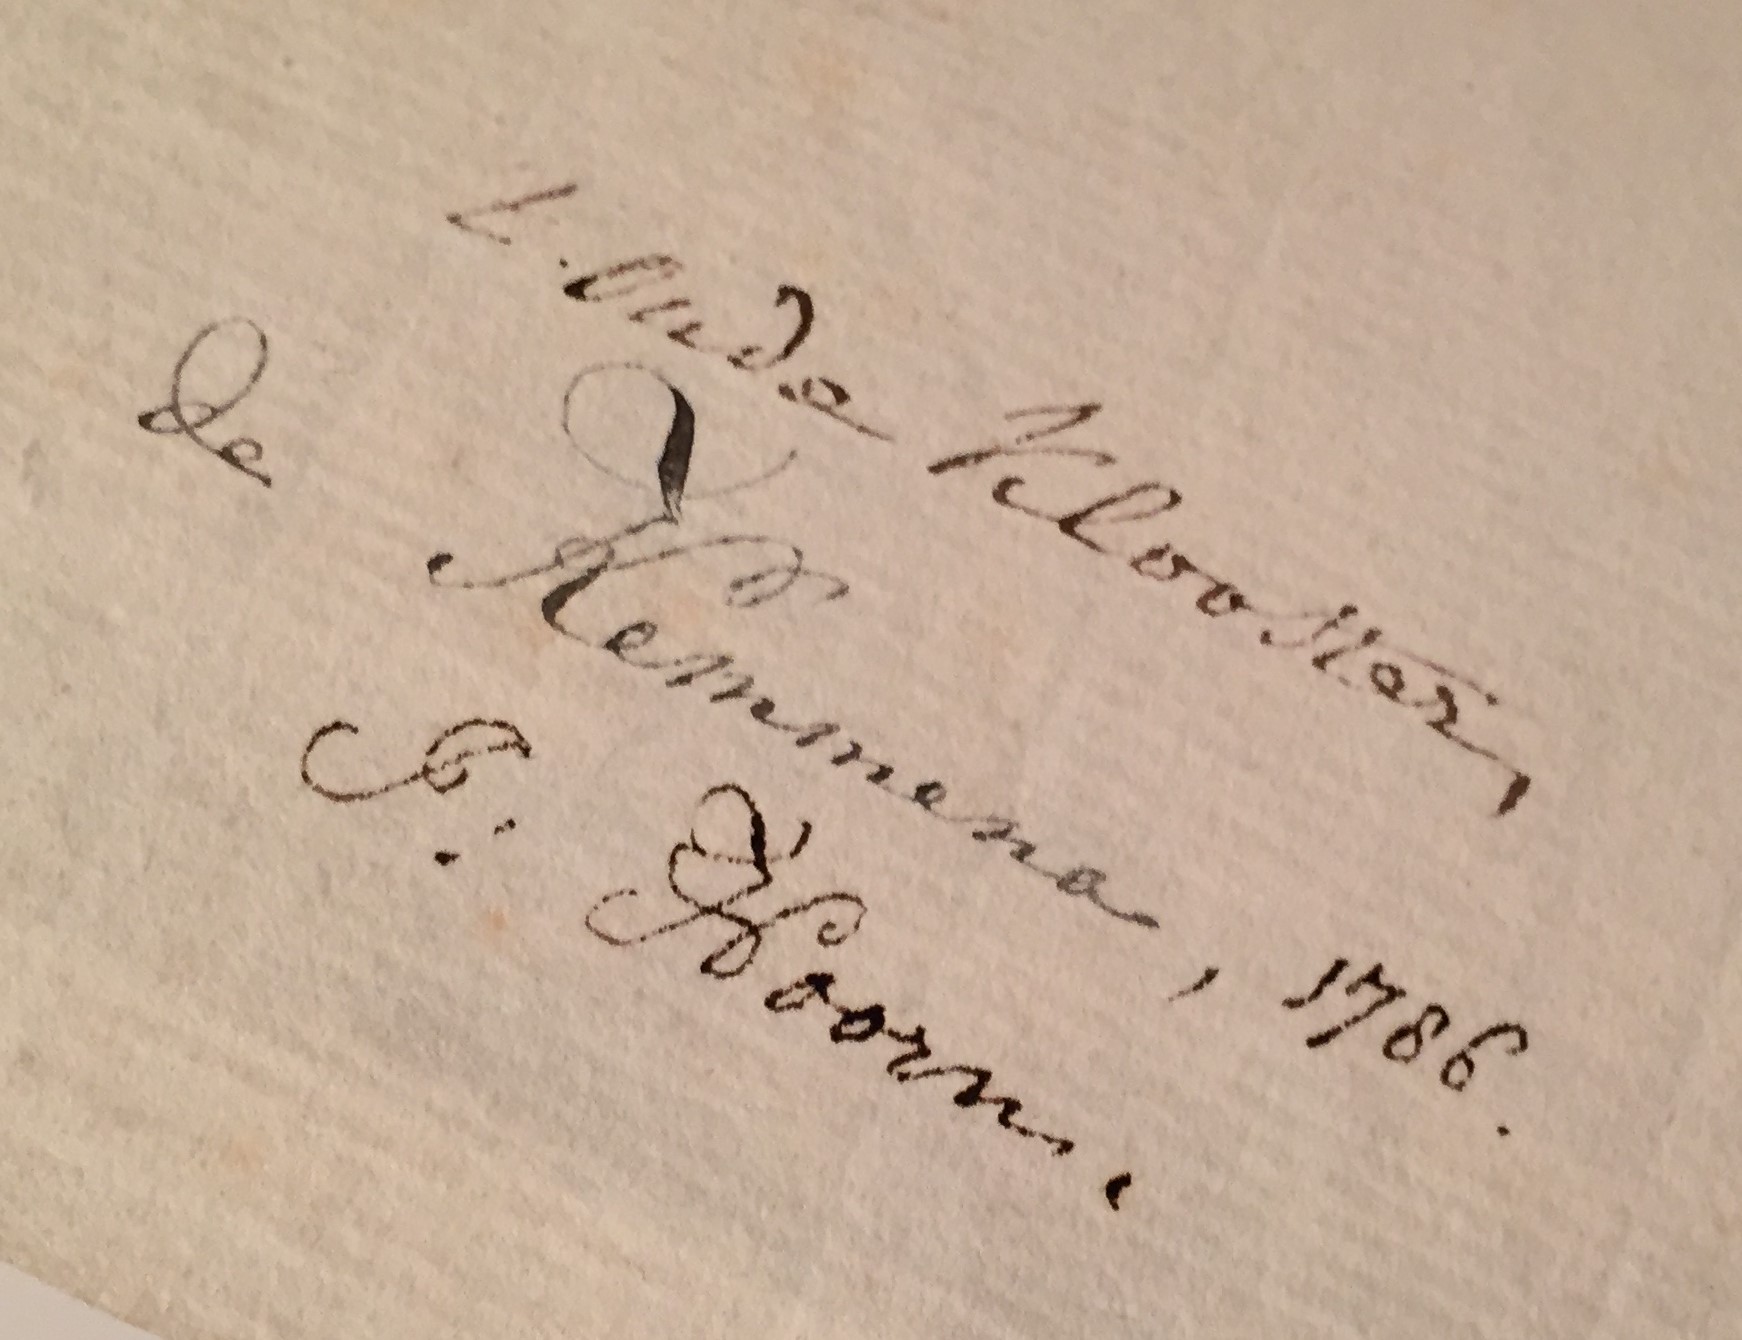 't Oude Klooster,
de Kemmena, 1786.
P: Hoorn,